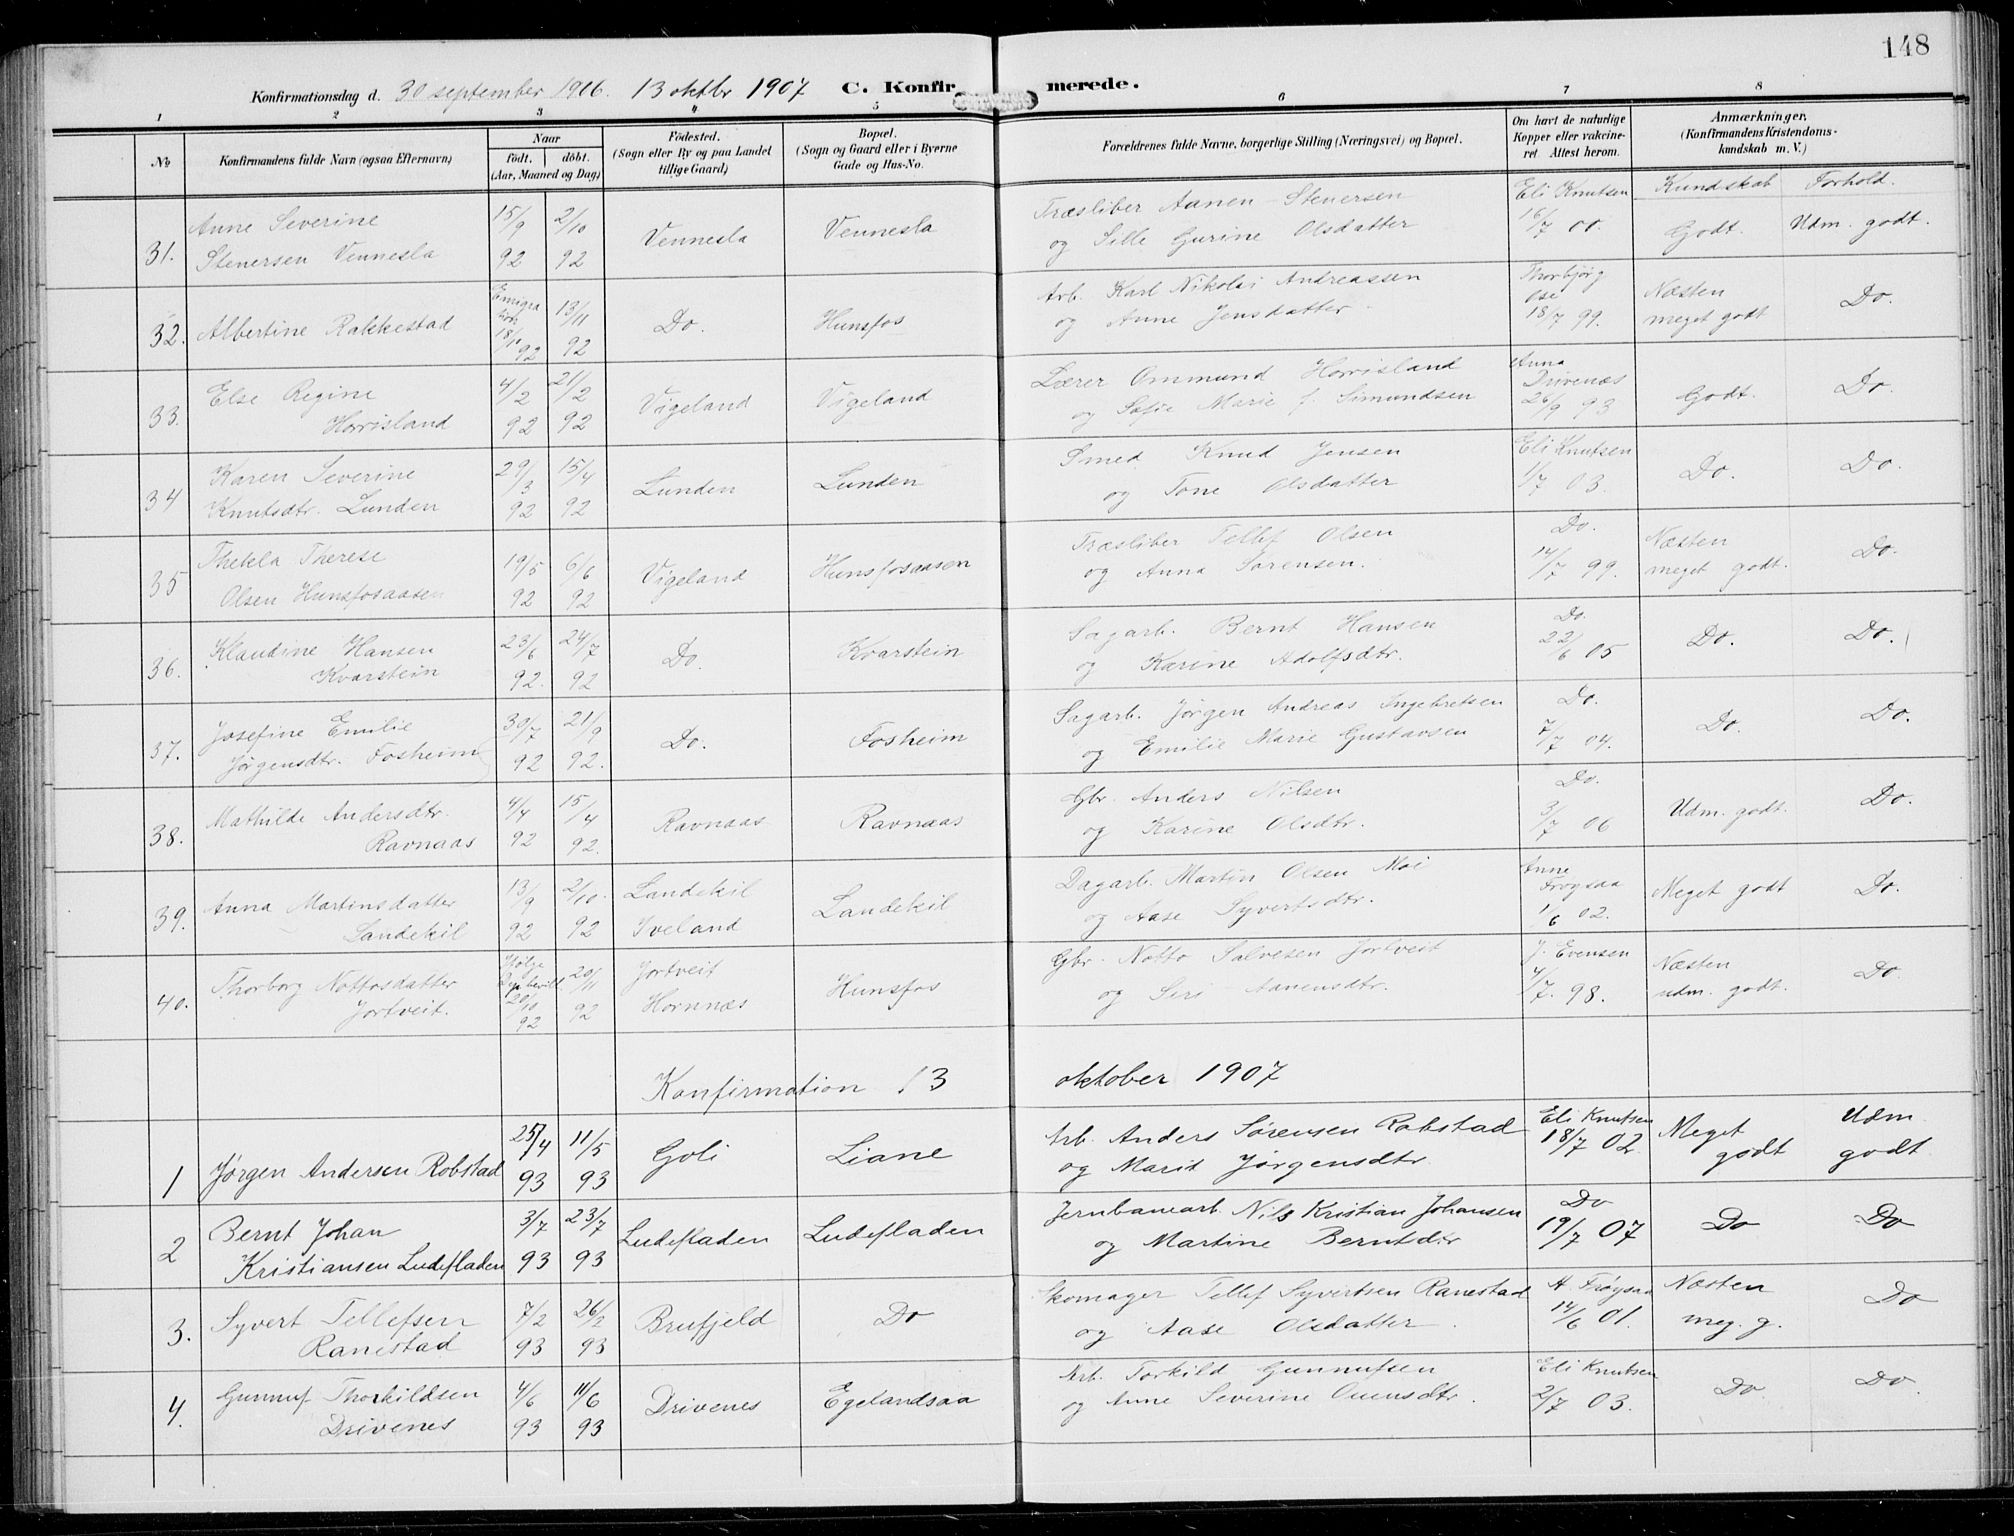 148
Konfirmationsdag d. 30 september 1906. 13 oktbr 1907 C. Konfirmerede.
1 2 3 4 5 6 7 8
No
Konfirmandens fulde Navn (ogsaa Efternavn)
Naar
født. døbt.
(Aar, Maaned og Dag)
Fødested.
(Sogn eller By og paa Landet
tillige Gaard)
Bopæl.
(Sogn og Gaard eller i Byerne
Gade og Hus-No.
Forældrenes fulde Navne, borgerlige Stilling (Næringsvei) og Bopæl.
Om havt de naturlige
Kopper eller vakcine-
ret Attest herom.
Anmærkninger.
(Konfirmandens Kristendoms-
kundskab m. V.)
Kundskab Forhold.
31. Anne Severine
Stenersen Vennesla
15/9 92 2/10 92
Vennesla
Vennesla
Træsliber Aanen Stenersen
og Sille Gurine Olsdatter
Eli Knutsen
16/7 00.
Godt. Udm. godt.
32. Albertine Rakkestad
18/10 92 13/11 92
Do.
Hunsfos
Arb. Karl Nikolai Andreassen
og Anne Jensdatter.
Thorbjørg
Ose
18/7 99.
Næsten
meget godt
Do.
33. Else Regine
Horrisland
4/2 92 21/2 92
Vigeland
Vigeland
Lærer Ommund Horrisland
og Sofie Marie f. Simundsen
Anna
Drivenæs
26/9 93
Godt. Do.
34 Karen Severine
Knutsdtr. Lunden
29/3 92 15/4 92
Lunden
Lunden
Smed Knud Jensen
og Tone Olsdatter
Eli Knutsen
1/7 03.
Do. Do.
35 Thekla Therese
Olsen Hunsfosaasen
19/5 92 6/6 92
Vigeland
Hunsfosaasen
Træsliber Tellef Olsen
og Anna Sørensen.
Do.
14/7 99.
Næsten
meget godt.
Do.
36. Klaudine Hansen
Kvarstein
23/6 92. 24/7 92
Do.
Kvarstein
Sagarb. Bernt Hansen
og Karine Adolfsdtr.
Do.
22/6 05
Do. Do.
37. Josefine Emilie
Jørgensdtr. Fosheim
30/7 92 21/9 92.
Do.
Fosheim
Sagarb. Jørgen Andreas Ingebretsen
og Emilie Marie Gustavsen
Do.
7/7 04.
Do. Do.
38. Mathilde Andersdtr.
Ravnaas
4/4 92 15/4 92.
Ravnaas
Ravnaas
Gbr. Anders Nilsen
og Karine Olsdtr.
Do.
3/7 06
Udm. godt. Do.
39. Anna Martinsdatter
Landekil
13/9 92 2/10. 92
Landekil
Iveland
Landekil
Dagarb. Martin Olsen Moi
og Aase Syvertsdtr.
Anne
Frøysaa
1/6 02.
Meget godt Do.
40. Thorborg Nottosdatter
Jortveit.
20/10 92 20/11 92
Jortveit
Hornnæs
Hunsfos
Gbr. Notto Salvesen Jortveit
og Siri Aanensdtr.
J. Evensen
4/7. 98.
Næsten
udm. godt.
Do.
Konfirmation 13 oktober 1907
1 Jørgen Andersen Robstad
25/4 93 11/5 93
Goli
Liane
Arb. Anders Sørensen Robstad
og Marit Jørgensdtr.
Eli Knutsen
18/7 02.
Meget
godt
Udm
godt
2 Bernt Johan
Kristiansen Ludefladen
3/7 93 23/7 93
Ludefladen
Ludefladen
Jernbanearb. Nils Kristian Johansen
og Martine Berntsdtr
Do
19/7 07
Do Do
3. Syvert Tellefsen
Ranestad
7/2 93 26/2 93
Brufjeld
Do
Skomager Tellef Syvertsen Ranestad
og Aase Olsdatter.
A Frøysaa
14/6 01.
Næsten
meg. g.
Do
4. Gunnuf Thorkildsen
Drivenes
4/6 93 11/6 93
Drivenes
Egelandsaa
Arb. Torkild Gunnufsen
og Anne Severine Ouensdtr.
Eli Knutsen
2/7 03.
Do. Do.